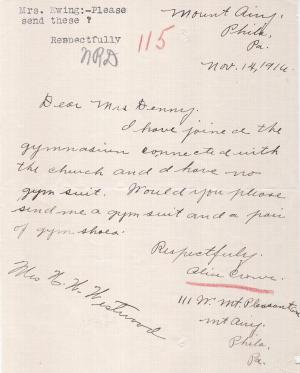 Mrs. Ewing:-Please
send these ?
Respectfully
NRD
115
Mount Airy,
Phila,
Pa.
Nov. 14, 1916
Dear Mrs Denny.
I have joined the
gymnasium connected with
the church and I have no
gym suit. Would you please
send me a gym suit and a pair
of gym shoes.
Respectfully.
Alice Crowe.
Mrs H. W. Westwood
111 W. Mt. Pleasant
Mt Airy.
Phila.
Pa.